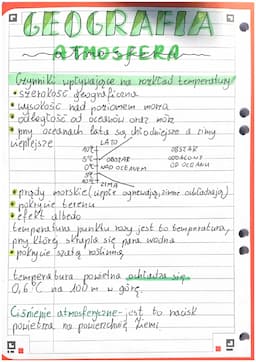 GEOGRAFIA
ATMOSFERA
Czynniki wpływające na rozkład temperatury
• szerokość geograficzna
• wysokość nad poziomem morza
• odległość od oceanów oraz mórz
• przy oceanach lata są chłodniejsze a zimy
cieplejsze
LATO
OBSZAR
NAD OCEANEM
ZIMA
OBSZAR
ODDALONY
OD OCEANU
• prądy morskie (ciepłe ogrzewają, zimne ochładzają)
• pokrycie terenu
• efekt albedo
temperatura punktu rosy jest to temperatura,
przy której skrapla się para wodna
• pokrycie szatą roślinną
temperatura powietrza ochładza się
0,6°C na 100 m w górę.
Ciśnienie atmosferyczne - jest to nacisk
powietrza na powierzchnię Ziemi